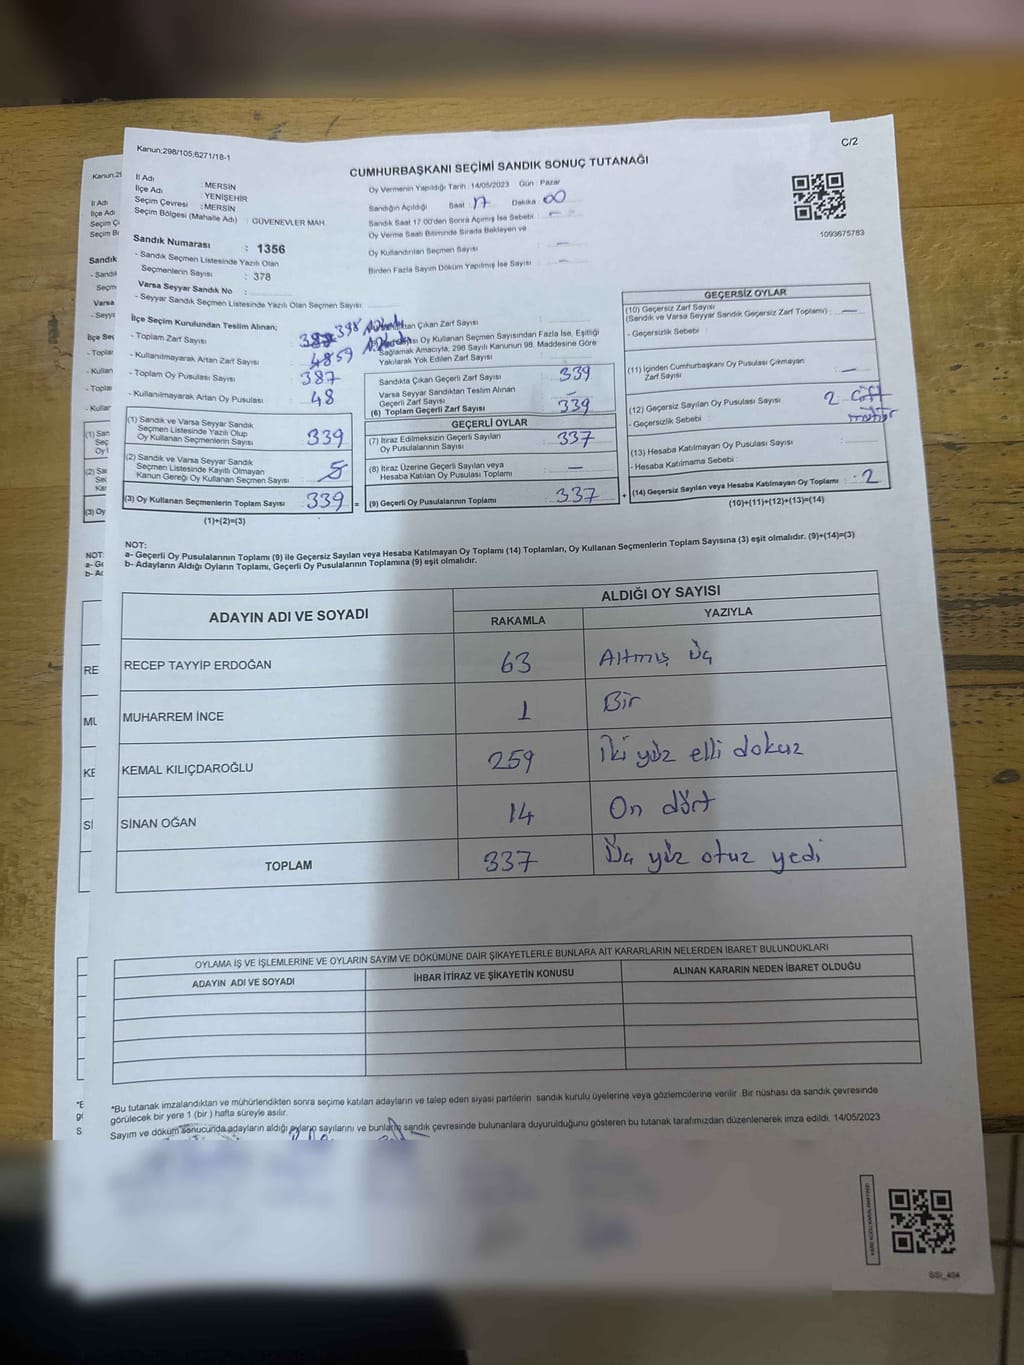 Kanun:298/105;6271/18-1
C/2
CUMHURBAŞKANI SEÇİMİ SANDIK SONUÇ TUTANAĞI
İl Adı : MERSİN
İlçe Adı : YENİŞEHİR
Seçim Çevresi : MERSİN
Seçim Bölgesi (Mahalle Adı) : GÜVENEVLER MAH.
Oy Vermenin Yapıldığı Tarih : 14/05/2023 Gün : Pazar
Sandığın Açıldığı Saat 17 Dakika 00
Sandık Saat 17:00'den Sonra Açımış İse Sebebi : —
Oy Verme Saati Bitiminde Sırada Bekleyen ve
Oy Kullandırılan Seçmen Sayısı : —
Birden Fazla Sayım Döküm Yapılmış İse Sayısı : —
1093675783
Sandık Numarası : 1356
- Sandık Seçmen Listesinde Yazılı Olan
Seçmenlerin Sayısı : 378
Varsa Seyyar Sandık No :
- Seyyar Sandık Seçmen Listesinde Yazılı Olan Seçmen Sayısı
İlçe Seçim Kurulundan Teslim Alınan;
- Toplam Zarf Sayısı 398
- Kullanılmayarak Artan Zarf Sayısı 59
- Toplam Oy Pusulası Sayısı : 387
- Kullanılmayarak Artan Oy Pusulası : 48
(1) Sandık ve Varsa Seyyar Sandık
Seçmen Listesinde Yazılı Olup
Oy Kullanan Seçmenlerin Sayısı 339
(2) Sandık ve Varsa Seyyar Sandık
Seçmen Listesinde Kayıtlı Olmayan
Kanun Gereği Oy Kullanan Seçmen Sayısı
(3) Oy Kullanan Seçmenlerin Toplam Sayısı 339 =
(1)+(2)=(3)
Çıkan Zarf Sayısı
Oy Kullanan Seçmen Sayısından Fazla İse, Eşitliği
Sağlamak Amacıyla, 298 Sayılı Kanunun 98. Maddesine Göre
Yakılarak Yok Edilen Zarf Sayısı
Sandıkta Çıkan Geçerli Zarf Sayısı 339
Varsa Seyyar Sandıktan Teslim Alınan
Geçerli Zarf Sayısı —
(6) Toplam Geçerli Zarf Sayısı 339
GEÇERLİ OYLAR
(7) İtiraz Edilmeksizin Geçerli Sayılan
Oy Pusulalarının Sayısı 337
(8) İtiraz Üzerine Geçerli Sayılan veya
Hesaba Katılan Oy Pusulası Toplamı —
(9) Geçerli Oy Pusulalarının Toplamı 337 +
GEÇERSİZ OYLAR
(10) Geçersiz Zarf Sayısı
(Sandık ve Varsa Seyyar Sandık Geçersiz Zarf Toplamı) : —
- Geçersizlik Sebebi :
(11) İçinden Cumhurbaşkanı Oy Pusulası Çıkmayan
Zarf Sayısı —
(12) Geçersiz Sayılan Oy Pusulası Sayısı 2 Çift
- Geçersizlik Sebebi : mühür
(13) Hesaba Katılmayan Oy Pusulası Sayısı :
- Hesaba Katılmama Sebebi :
(14) Geçersiz Sayılan veya Hesaba Katılmayan Oy Toplamı : 2
(10)+(11)+(12)+(13)=(14)
NOT:
a- Geçerli Oy Pusulalarının Toplamı (9) ile Geçersiz Sayılan veya Hesaba Katılmayan Oy Toplamı (14) Toplamları, Oy Kullanan Seçmenlerin Toplam Sayısına (3) eşit olmalıdır. (9)+(14)=(3)
b- Adayların Aldığı Oyların Toplamı, Geçerli Oy Pusulalarının Toplamına (9) eşit olmalıdır.
ADAYIN ADI VE SOYADI
ALDIĞI OY SAYISI
RAKAMLA YAZIYLA
RECEP TAYYİP ERDOĞAN 63 Altmış Üç
MUHARREM İNCE 1 Bir
KEMAL KILIÇDAROĞLU 259 İki yüz elli dokuz
SİNAN OĞAN 14 On dört
TOPLAM 337 Üç yüz otuz yedi
OYLAMA İŞ VE İŞLEMLERİNE VE OYLARIN SAYIM VE DÖKÜMÜNE DAİR ŞİKAYETLERLE BUNLARA AİT KARARLARIN NELERDEN İBARET BULUNDUKLARI
ADAYIN ADI VE SOYADI İHBAR İTİRAZ VE ŞİKAYETİN KONUSU ALINAN KARARIN NEDEN İBARET OLDUĞU
*Bu tutanak imzalandıktan ve mühürlendikten sonra seçime katılan adayların ve talep eden siyasi partilerin sandık kurulu üyelerine veya gözlemcilerine verilir .Bir nüshası da sandık çevresinde
görülecek bir yere 1 (bir ) hafta süreyle asılır.
Sayım ve döküm sonucunda adayların aldığı oyların sayılarını ve bunların sandık çevresinde bulunanlara duyurulduğunu gösteren bu tutanak tarafımızdan düzenlenerek imza edildi. 14/05/2023